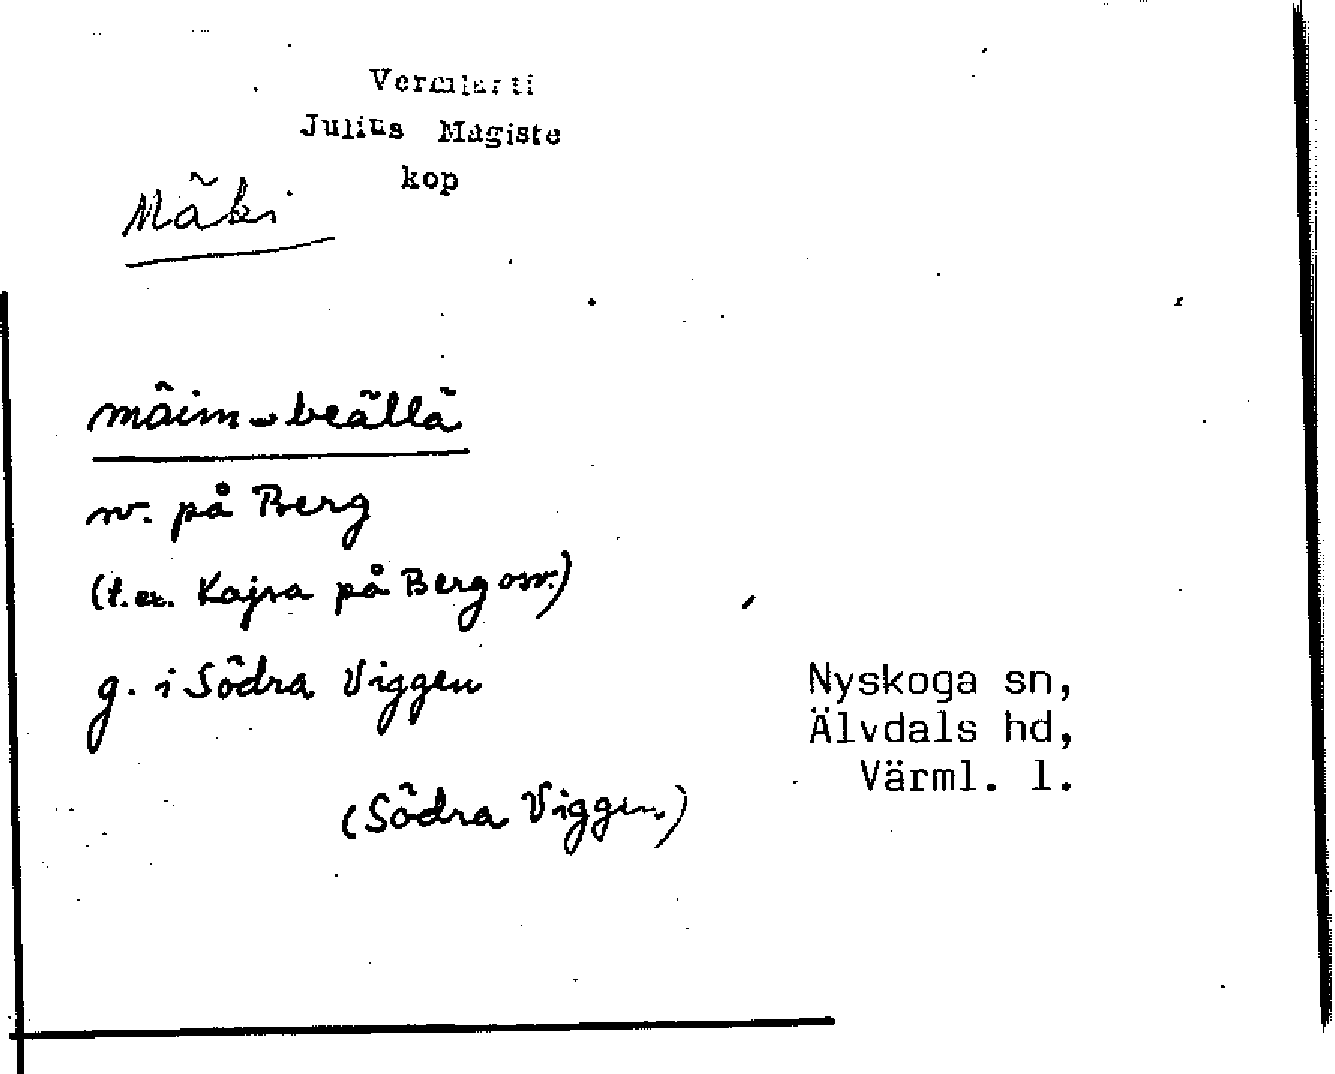 Vermlanti
Julius Mägiste
kop
Mäki
mäim-beällä
nv. på Berg
(t.ex. Kajsa på Berg osv.)
g. i Södra Viggen
Nyskoga sn,
Älvdals hd,
Värml. l.
(Södra Viggen)